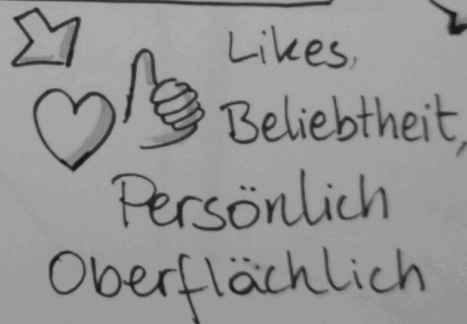 Likes,
Beliebtheit,
Persönlich
Oberflächlich